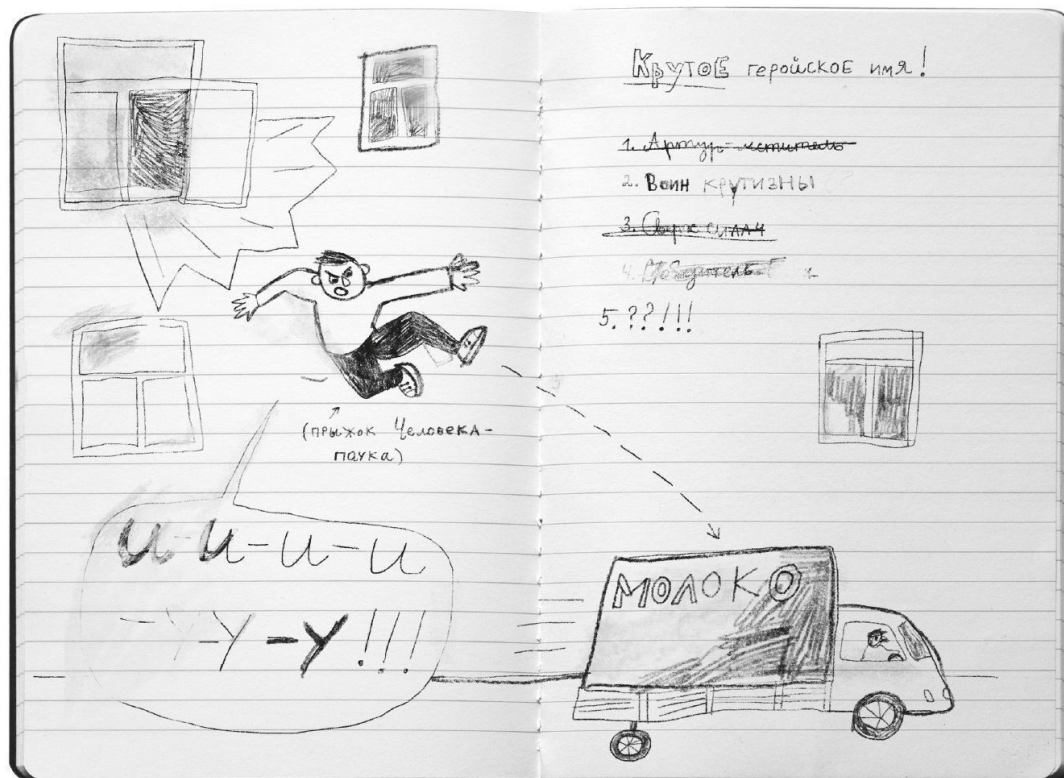 (прыжок Человека-
паука)
и-и-и-и
-У-У-У!!!
Крутое геройское имя!
1. Артур-мститель
2. Воин крутизны
3. Сверхсилач
4. Победитель
5. ??!!!
МОЛОКО